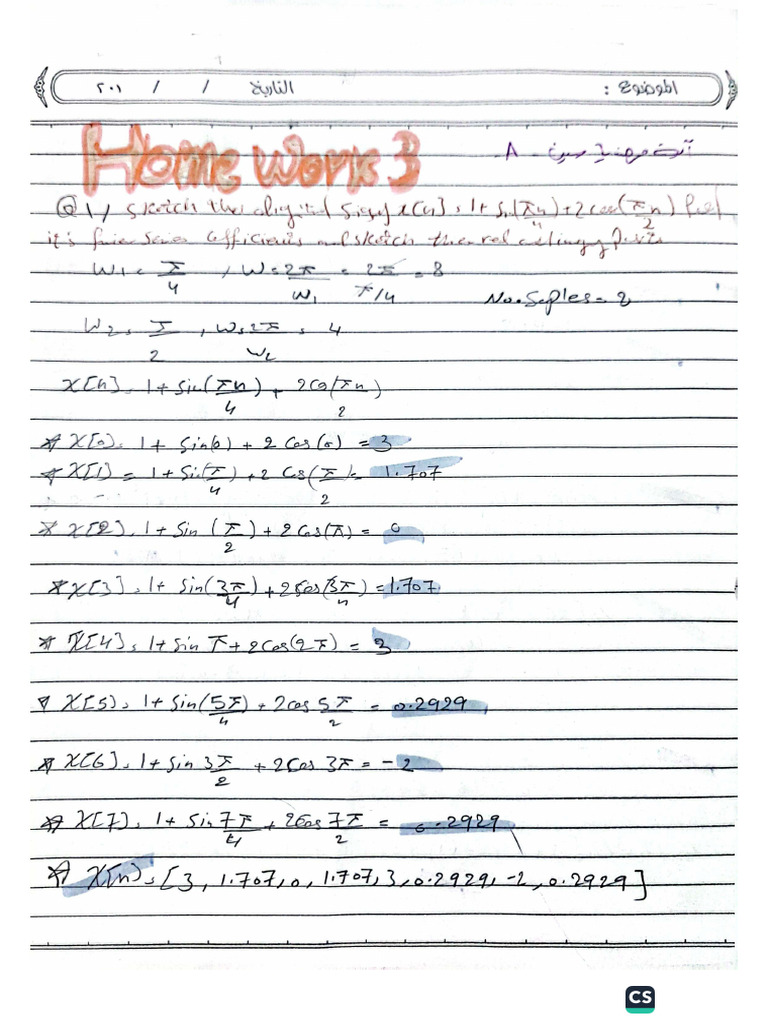 الموضوع :
التاريخ / / ٢٠١
Home Work 3
A -
Q1/ sketch the digital x[n] = 1 + sin(πn/4) + 2cos(πn/2) find
it's series coefficients and sketch the real
W1 = π/4 , W = 2π/W1 = 2π/π/4 = 8
No. = 8
W2 = π/2 , W = 2π/W2 = 4
x[n] = 1 + sin(πn/4) + 2cos(πn/2)
* X[0] = 1 + sin(0) + 2 cos(0) = 3
* X[1] = 1 + sin(π/4) + 2 cos(π/2) = 1.707
* X[2] = 1 + sin(π/2) + 2 cos(π) = 0
* X[3] = 1 + sin(3π/4) + 2 cos(3π/2) = 1.707
* X[4] = 1 + sin π + 2 cos(2π) = 3
* X[5] = 1 + sin(5π/4) + 2 cos 5π/2 = 0.2929
* X[6] = 1 + sin 3π/2 + 2 cos 3π = -2
* X[7] = 1 + sin 7π/4 + 2 cos 7π/2 = 0.2929
* X[n] = [3, 1.707, 0, 1.707, 3, 0.2929, -2, 0.2929]
CS